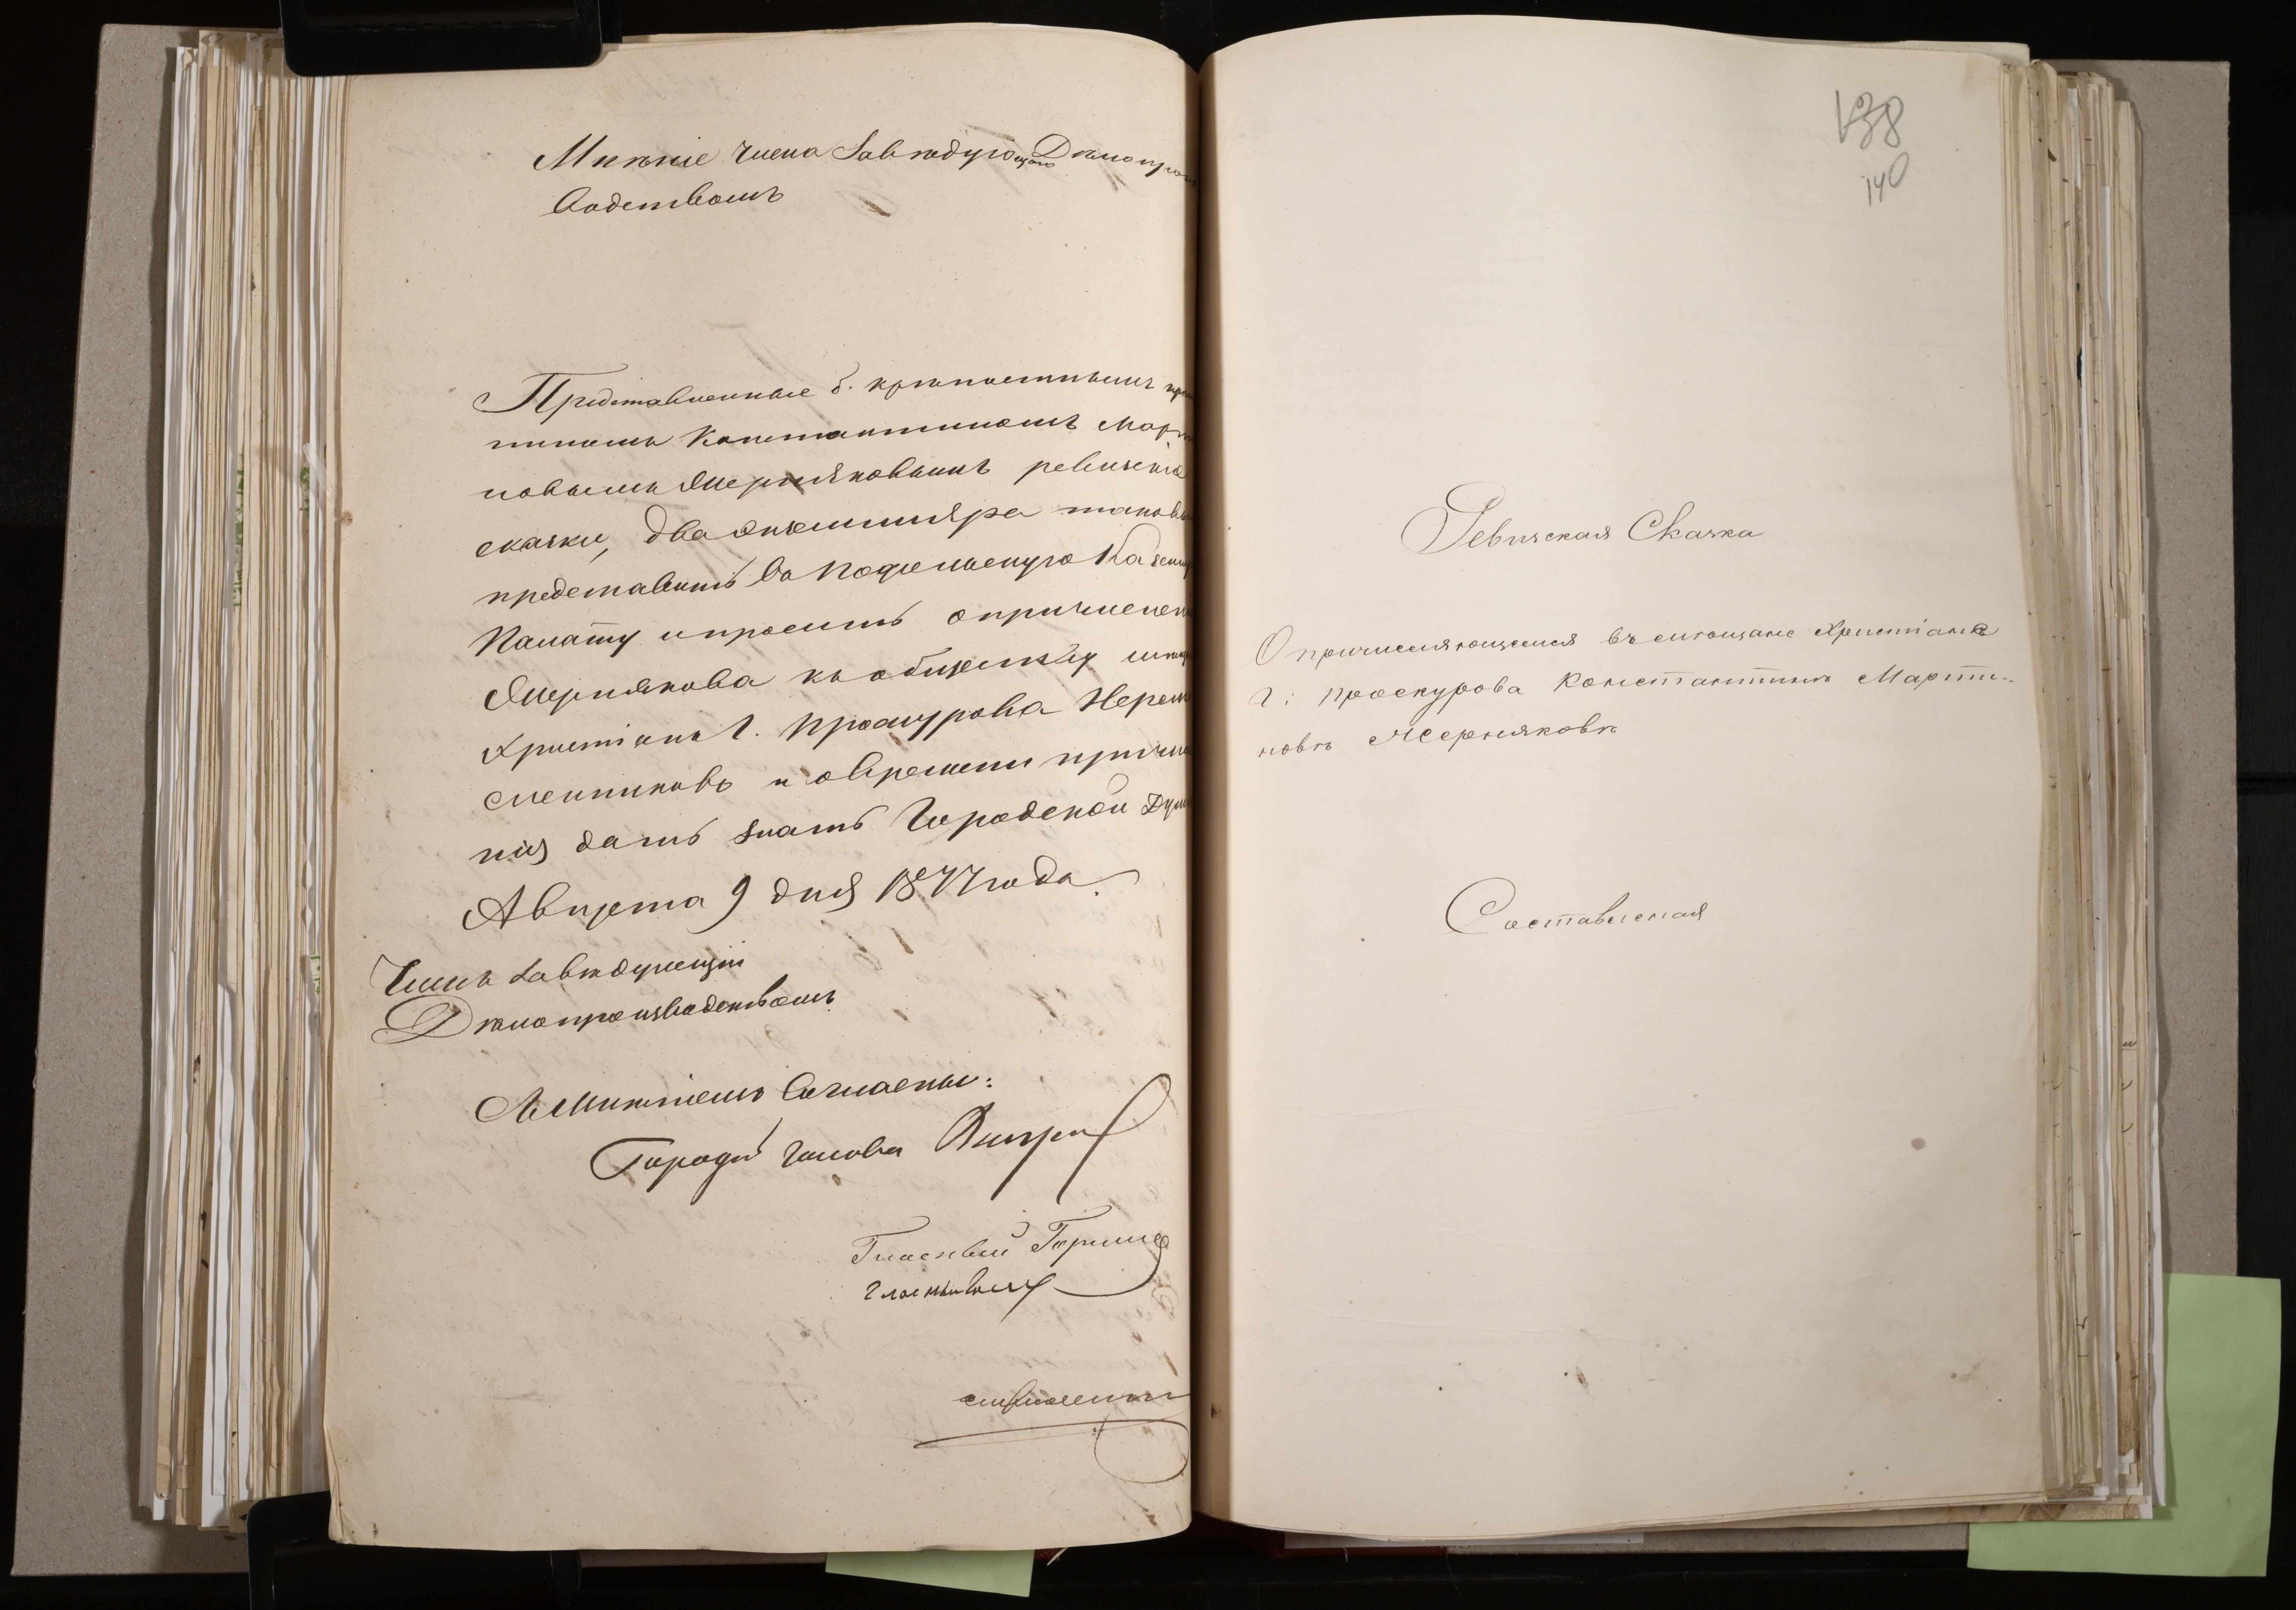 Мнѣніе Члена Завѣдующаго Дѣлопроиз
водствомъ
Представленные б. крѣпостнымъ
Константиномъ Март
новымъ Мерняковымъ ревизскіе
сказки, два экземпляра таковы
представить въ Подольскую Казен
Палату и просить о причислен
Мернякова къ обществу
Христіанъ г. Проскурова
и о времени причис
нія дать знать Городской Дум
Августа 9 дня 1877 года.
Членъ Завѣдующій
Дѣлопроизводствомъ
Съ мнѣніемъ согласны:
Город. голова
Гласный
Гласный
138
140
Ревизская Сказка
О причисляющемся въ мѣщане Христіане
г: Проскурова Константинѣ Марти-
новѣ Мерняковѣ
Составленая